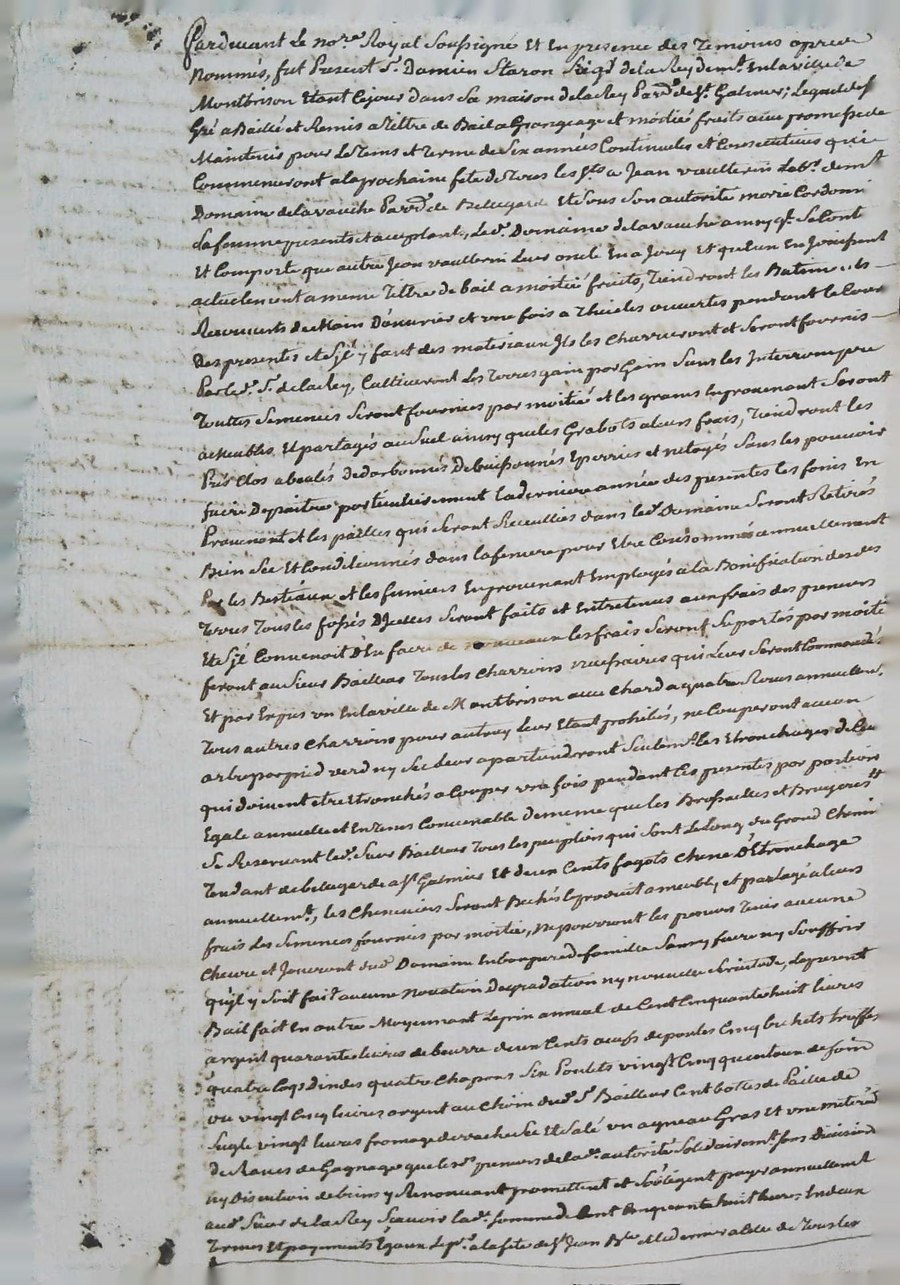 Pardevant le no.re Royal Soussigné Et En presence des Temoins apres
Nommés, fut Present S.r Damien Staron Seig.r de la Rey dem.t En la ville de
Montbrison Etant Cejour dans Sa maison de la Rey Par.se de S.t Galmier; Lequel de
Gré a Baillé et Remis a Tiltre de Bail a Grangeage et moitié fruits avec promesse de
Maintenir pour Le Tems et Terme de Six années Continuelles et Consecutives qui
Commenceront a la prochaine fete de Tous les S.ts a Jean vaullerin Lab.r dem.t
Domaine de la vauche Par.se de Bellegarde Et Sous Son autorité marie
Sa femme presents et acceptant, Le d. Domaine de la vauche ainsy q.l Se Contient
Et Comporte que autre Jean vaullerin Leur oncle En a Jouy Et qu'eux En Jouissent
actuelement a meme Tiltre de bail a moitié fruits, Tiendront les Batiments
Recouverts de Main D'ouvrier et une fois a Thuiles ouvertes pendant le Cour
Des presentes et S'il y faut des materiaux Ils les Charrieront et Seront fournis
Par le d. S.r de la Rey, Cultiveront Les Terres gain par Gain Sans les Interrompre
Toutes Semences Seront fournies par moitié et les grains En provenant Seront
ameublés Et partagés au Suel ainsy que les Grabots a leurs frais, Tiendront les
Prés Clos abealés dedarbonnés Debuissonnés Eperriés et netoyés Sans les pouvoir
faire Depaitre particulierement la derniere année des presentes les foins En
Provenant et les pailles qui Seront Recueillies dans le d. Domaine Seront Retirés
Bien Sec Et Conditionnés dans la feniere pour Etre Consommés annuellement
Par les Bestiaux et les fumiers En provenant Employés a la Bonification des d.
Terres Tous les fossés D'Icelles Seront faits et Entretenus aux frais des preneurs
Et S'il Convenoit D'En faire de nouveaux les frais Seront Suportés par moitié
feront au Sieur Bailleur Tous les Charrois necessaires qui Leur Seront Commandés
Et par Exprès un En la ville de Montbrison avec Chard a quatre Roues annuellem.t
Tous autres Charrois pour autruy Leur Etant prohibés, ne Couperont aucun
arbre par pied verd ny Sec Leur apartiendront Seulem.t les Etronchages de Ceux
qui doivent etre Etronchés a Couper une fois pendant Les presentes par portions
Egale annuelle et En tems Convenable De meme que les Brossailles et Bruyeres
Se Reservant le d. Sieur Bailleur Tous les peupliers qui Sont Le Long du Grand Chemin
Tendant de bellegarde a S.t Galmier Et deux Cents fagots Chene D'Etronchage
annuellem.t, les Cheneviers Seront Bechés le produit ameublé, et partagé a leurs
frais Les Semences fournies par moitié, ne pourront les preneurs Tenir aucune
Chevre et Jouiront du d. Domaine En bon pere de famille Sans y faire ny Souffrir
qu'il y Soit fait aucune Novation Degradation ny nouvelle Servitude, Le present
Bail fait En outre Moyennant Le prix annuel de Cent Cinquante huit livres
argent quarante livres de beurre deux Cents œufs de poules Cinq bichets truffes
quatre Coqs dindes quatre Chapons Six Poulets vingt Cinq quintaux de foin
ou vingt Cinq livres argent au Choix du d. S.r Bailleur Cent bottes de Paille de
Segle vingt livres fromage de vache Sec Et Salé un agneau Gras Et une
de Raves de Gagnage que les d. preneurs de la d. autorité Solidairem.t Sans Division
ny Discution de biens y Renonçant promettent et S'obligent payer annuellement
au d. Sieur de la Rey Scavoir la d. Somme de Cent Cinquante huit livres, En deux
Termes Et payements Egaux Le p.r a la fete de S.t Jean B.te et le dernier a Celle de Tous les